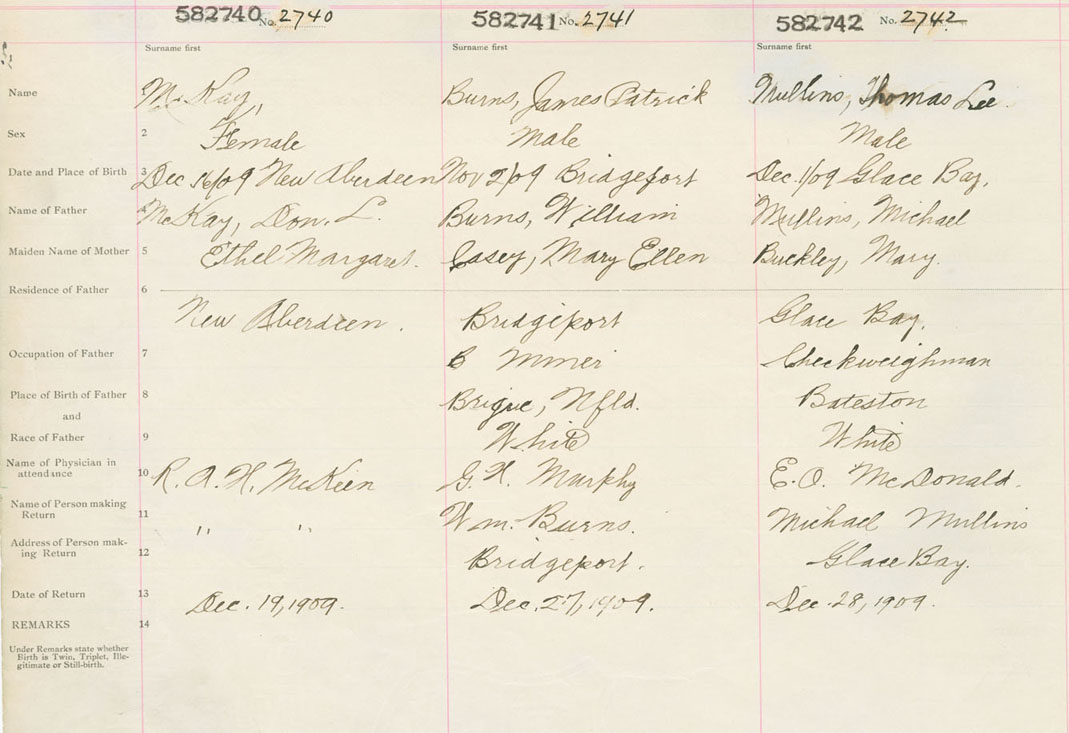 582740 No. 2740 582741 No. 2741 582742 No. 2742
Surname first Surname first Surname first
Name 1 McKay, Burns, James Patrick Mullins, Thomas Lee
Sex 2 Female Male Male
Date and Place of Birth 3 Dec 16/09 New Aberdeen Nov 2/09 Bridgeport Dec. 1/09 Glace Bay,
Name of Father 4 McKay, Don. L. Burns, William Mullins, Michael
Maiden Name of Mother 5 Ethel Margaret. Casey, Mary Ellen Buckley, Mary.
Residence of Father 6
New Aberdeen. Bridgeport Glace Bay.
Occupation of Father 7 Miner Checkweighman
Place of Birth of Father 8 Brigue, Nfld. Bateston
and
Race of Father 9 White White
Name of Physician in
attendance 10 R. A. H. McKeen G. H. Murphy E. O. McDonald.
Name of Person making
Return 11 " " Wm. Burns. Michael Mullins
Address of Person mak-
ing Return 12 Bridgeport. Glace Bay.
Date of Return 13 Dec. 19, 1909. Dec. 27, 1909. Dec. 28, 1909.
REMARKS 14
Under Remarks state whether
Birth is Twin, Triplet, Ille-
gitimate or Still-birth.